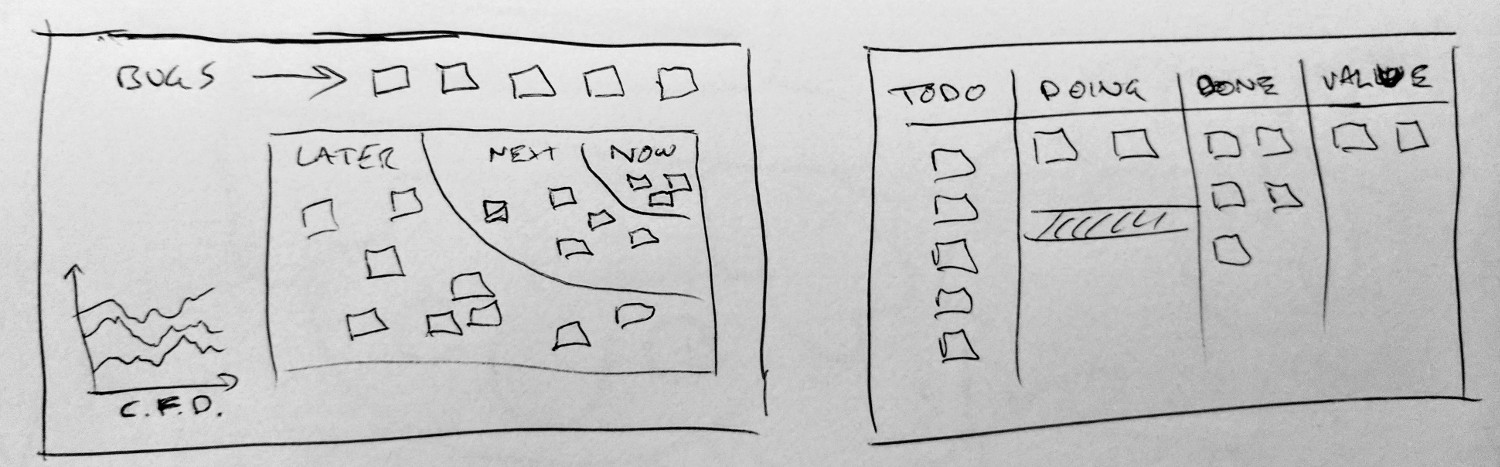 BUGS
LATER NEXT NOW
C.F.D.
TODO DOING DONE VALUE